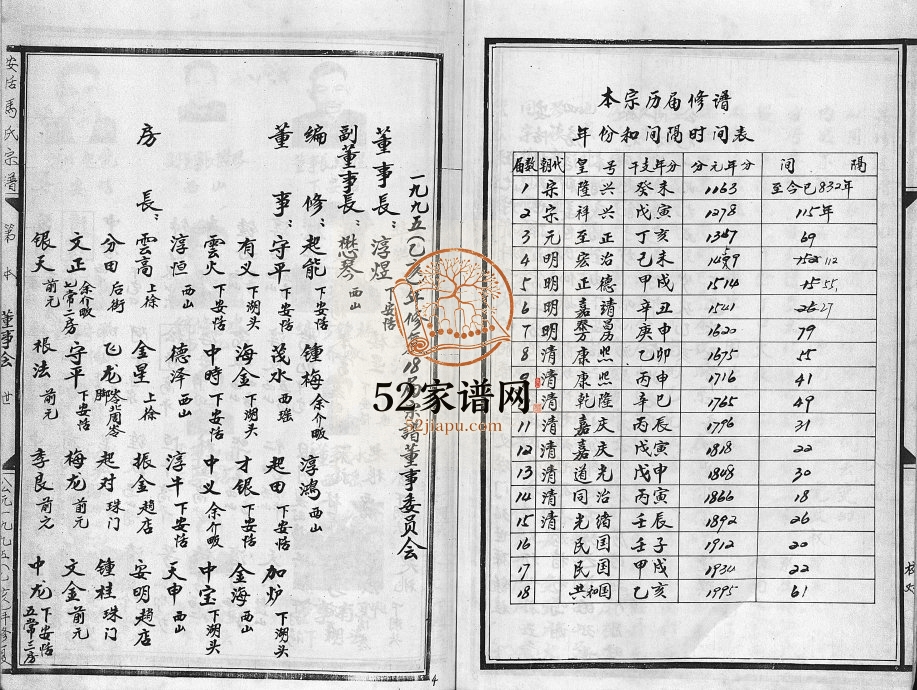 本宗历届修谱
年份和间隔时间表
届数 朝代 皇号 干支年分 公元年分 间隔
1 宗 隆兴 癸未 1163 至今已832年
2 宗 祥兴 戊寅 1278 115年
3 元 至正 丁亥 1347 69
4 明 宏治 己未 1499 112
5 明 正德 甲戌 1514 15 55
6 明 嘉靖 辛丑 1541 27
7 明 庚申 1620 79
8 清 康熙 乙卯 1675 55
9 清 康熙 丙申 1716 41
清 乾隆 辛巳 1765 49
11 清 嘉庆 丙辰 1796 31
12 清 嘉庆 戊寅 1818 22
13 清 道光 戊申 1848 30
14 清 同治 丙寅 1866 18
15 清 光绪 壬辰 1892 26
16 民国 壬子 1912 20
17 民国 甲戌 1934 22
18 共和国 乙亥 1995 61
一九九五(乙亥)年修第18届宗譜董事委员会
董事長：淳煜 下安恬
副董事長：懋琴 西山
编修：起能 下安恬 鍾梅 余介畈 淳鴻 西山
董事：守平 下安恬 茂水 西瑶 起田 下安恬 加炉 下湖头
有义 下湖头 海金 下湖头 才银 下安恬 金海 西山
雲火 下安恬 中時 下安恬 中义 余介畈 中宝 下湖头
淳恒 西山 德泽 西山 淳牛 下安恬 天申 西山
房長：雲高 上徐 金星 上徐 振金 趙店 安明 趙店
分田 后街 飞龙 岺脚 北周岺 起对 珠门 鍾桂 珠门
文正 余介畈 七常二房 守平 下安恬 梅龙 前元 文金 前元
银天 前元 根法 前元 李良 前元 中龙 下安恬 五常三房
安恬馬氏宗譜
第 本
董事会
世
公元一九九五(乙亥)年修
4
52家谱网
52jiapu.com